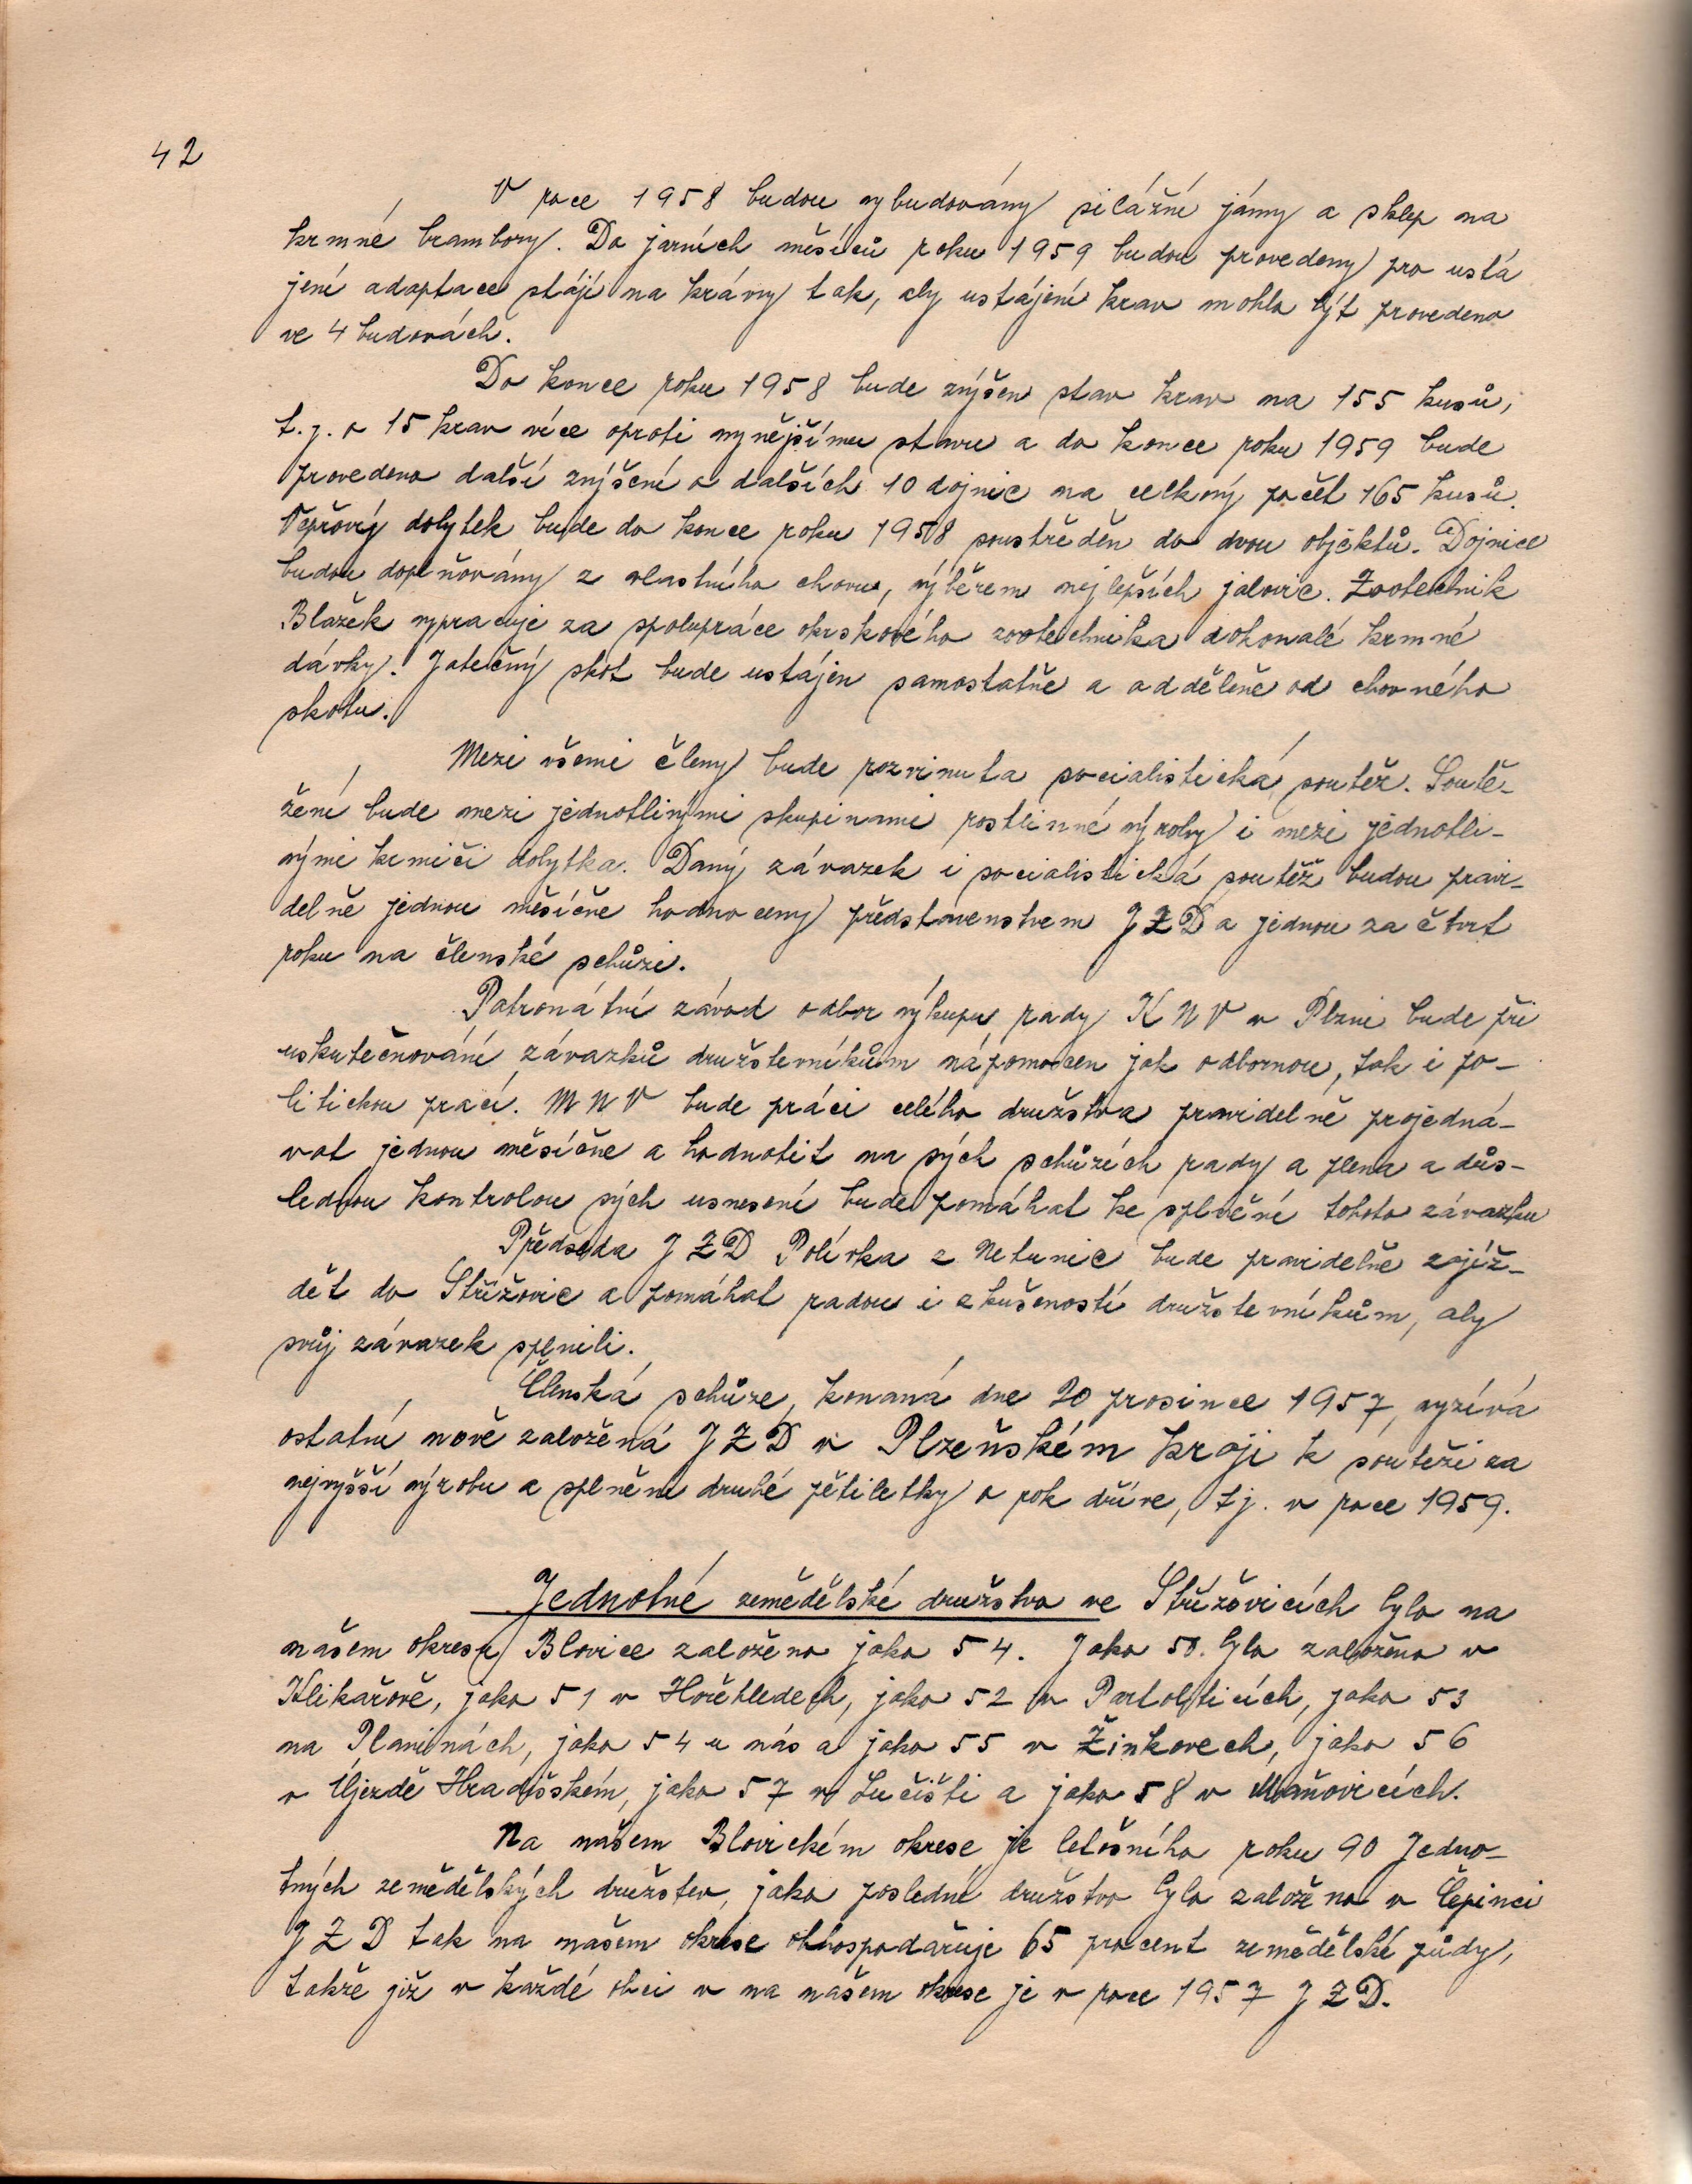 42
V roce 1958 budou vybudovány silážní jámy a sklep na
krmné brambory. Do jarních měsíců roku 1959 budou provedeny pro ustá
jení adaptace stájí na krávy tak, aby ustájení krav mohlo být provedeno
ve 4 budovách.
Do konce roku 1958 bude zvýšen stav krav na 155 kusů,
t.j. o 15 krav více oproti nynějšímu stavu a do konce roku 1959 bude
provedeno další zvýšení o dalších 10 dojnic na celkový počet 165 kusů.
Vepřový dobytek bude do konce roku 1958 soustředěn do dvou objektů. Dojnice
budou doplňovány z vlastního chovu, výběrem nejlepších jalovic. Zootechnik
Blažek vypracuje za spolupráce okrskového zootechnika dokonalé krmné
dávky. Jatečný skot bude ustájen samostatně a odděleně od chovného
skotu.
Mezi všemi členy bude rozvinuta socialistická soutěž. Soutě-
žení bude mezi jednotlivými skupinami rostlinné výroby i mezi jednotli-
vými krmiči dobytka. Daný závazek i socialistická soutěž budou pravi-
delně jednou měsíčně hodnoceny představenstvem JZD a jednou za čtvrt
roku na členské schůzi.
Patronátní závod odbor výkupu rady KNV v Plzni bude při
uskutečňování závazků družstevníkům nápomocen jak odbornou, tak i po-
litickou prací. MNV bude práci celého družstva pravidelně projedná-
vat jednou měsíčně a hodnotit na svých schůzích rady a plena a důs-
lednou kontrolou svých usnesení bude pomáhat ke splnění tohoto závazku
Předseda JZD Polívka z Netunic bude pravidelně zajíž-
dět do Střížovic a pomáhat radou i zkušeností družstevníkům, aby
svůj závazek splnili.
Členská schůze, konaná dne 20 prosince 1957, vyzívá
ostatní nově založená JZD v Plzeňském kraji k soutěži za
nejvyšší výrobu a splnění druhé pětiletky o rok dříve, tj. v roce 1959.
Jednotné zemědělské družstvo ve Střížovicích bylo na
našem okrese Blovice založeno jako 54. Jako 50. bylo založeno v
Klikařově, jako 51 v Hořehledech, jako 52 v Partolticích, jako 53
na Planinách, jako 54 u nás a jako 55 v Žinkovech, jako 56
v Újezdě Hradišském, jako 57 v Lučišti a jako 58 v Maňovicích.
Na našem Blovickém okrese je letošního roku 90 Jedno-
tných zemědělských družstev, jako poslední družstvo bylo založeno v Čepinci
JZD tak na našem okrese obhospodařuje 65 procent zemědělské půdy,
takže již v každé obci v na našem okrese je v roce 1957 JZD.